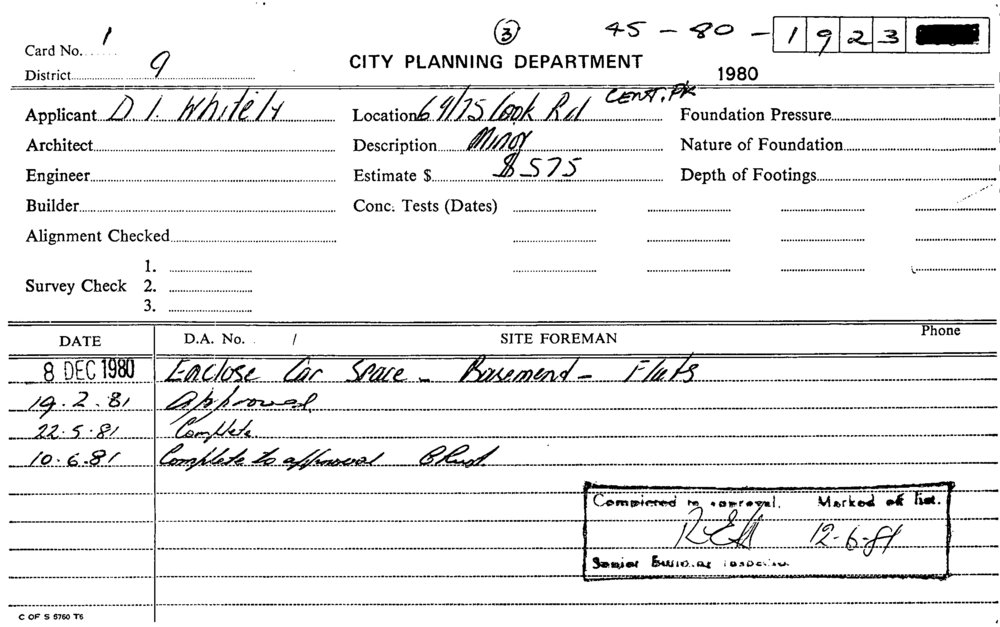 3 45-80-1923
Card No. 1
District 9
CITY PLANNING DEPARTMENT
1980
Applicant D. I. Whitely Location 69/75 Cook Rd CENT. PK Foundation Pressure
Architect Description Minor Nature of Foundation
Engineer Estimate $ $575 Depth of Footings
Builder Conc. Tests (Dates)
Alignment Checked
1.
Survey Check 2.
3.
DATE D.A. No. / SITE FOREMAN Phone
8 DEC 1980 Enclose Car Space - Basemend - Flats
19.2.81 Approved
22.5.81 Complete.
10.6.81 Complete to approval
Completed to approval. Marked off list.
12-6-81
Senior Building Inspector.
C OF S 5760 T6